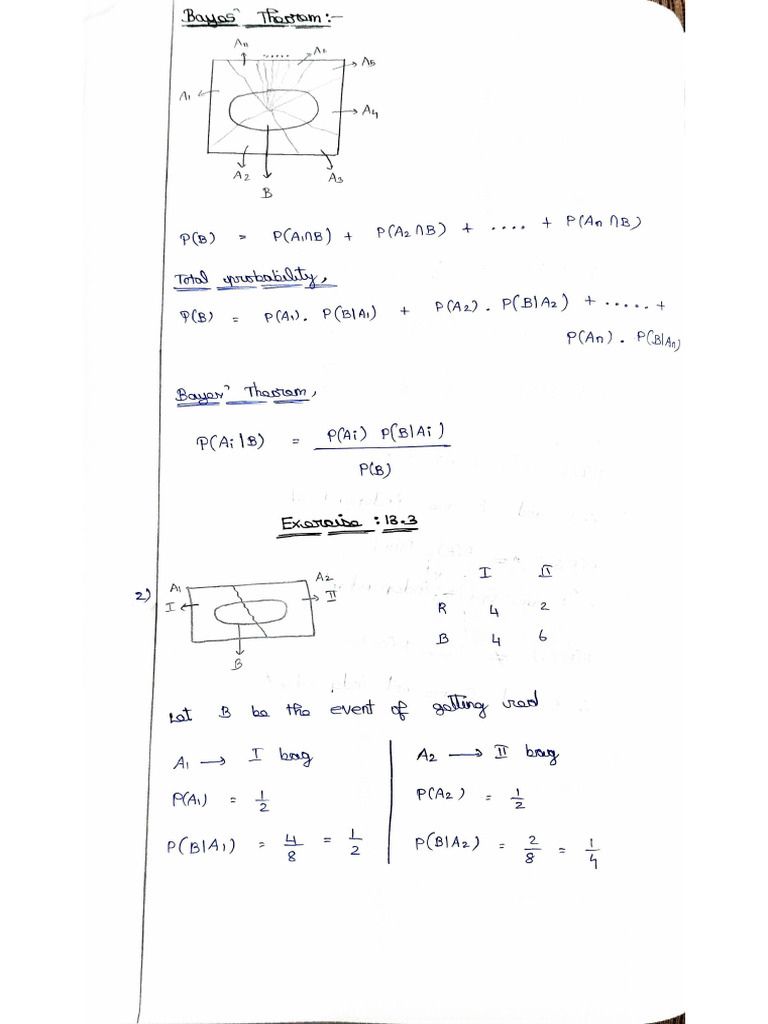 Bayes' Theorem:-
An ..... A6
A5
A1
A4
A2 A3
B
P(B) = P(A1∩B) + P(A2∩B) + .... + P(An∩B)
Total probability,
P(B) = P(A1). P(B|A1) + P(A2). P(B|A2) + ..... +
P(An). P(B|An)
Bayes' Theorem,
P(Ai|B) = P(Ai) P(B|Ai)
P(B)
Exercise : 13.3
2)
A1 A2
I II
B
I II
R 4 2
B 4 6
Let B be the event of getting red
A1 → I bag
P(A1) = 1/2
P(B|A1) = 4/8 = 1/2
A2 → II bag
P(A2) = 1/2
P(B|A2) = 2/8 = 1/4